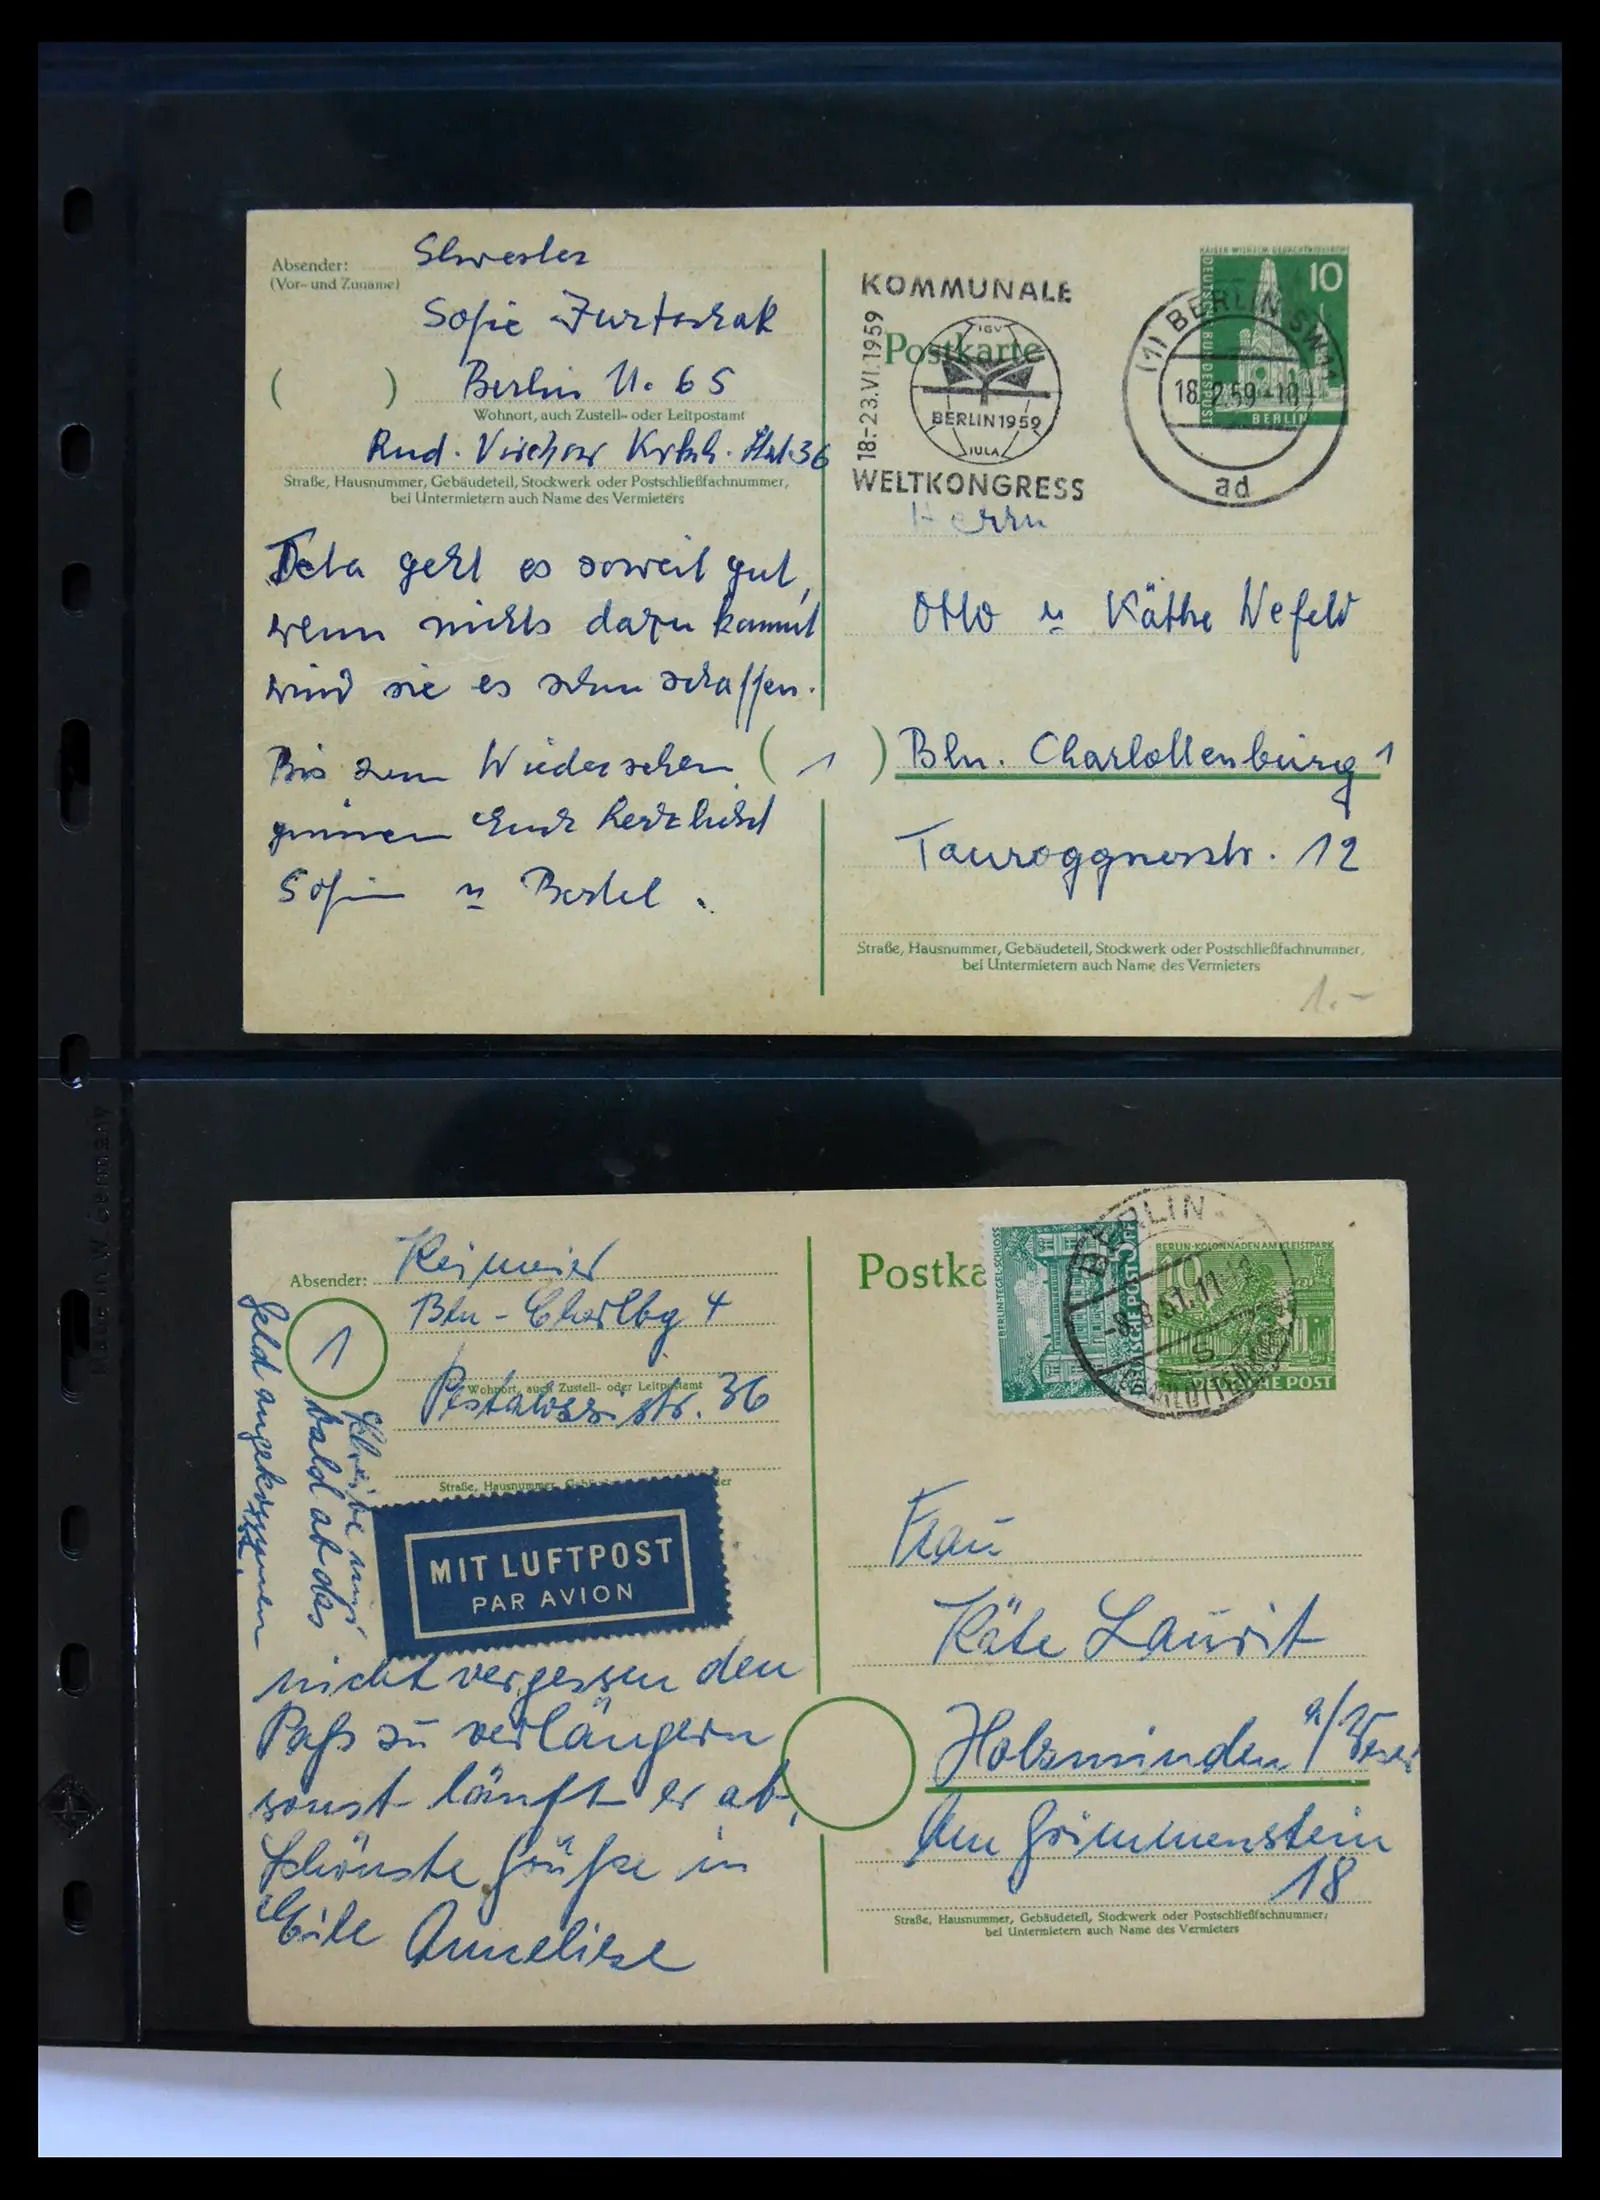 Absender:
(Vor- und Zuname)
Schwester
Sofie
( ) Berlin N. 65
Wohnort, auch Zustell- oder Leitpostamt
Rud. Virchow Krkh. 36
Straße, Hausnummer, Gebäudeteil, Stockwerk oder Postschließfachnummer,
bei Untermietern auch Name des Vermieters
geht es soweit gut,
wenn nichts dazu kommt
wird sie es schon schaffen.
Bis zum Wiedersehen
grüssen Euch herzlichst
Sofie u Bertel.
KOMMUNALE
18.-23.VI.1959
IGV
BERLIN 1959
IULA
WELTKONGRESS
Postkarte
KAISER-WILHELM-GEDÄCHTNISKIRCHE
10
DEUTSCHE BUNDESPOST
BERLIN
(1) BERLIN SW 11
18.2.59-10
ad
Herrn
Otto u Käthe Wefeld
( 1 ) Bln. Charlottenburg 1
Tauroggnerstr. 12
Straße, Hausnummer, Gebäudeteil, Stockwerk oder Postschließfachnummer,
bei Untermietern auch Name des Vermieters
1.-
Made in W. Germany
Absender: Reimeier
1
Bln-Charlbg 4
Wohnort, auch Zustell- oder Leitpostamt
Pestalozzistr. 36
Straße, Hausnummer,
MIT LUFTPOST
PAR AVION
bald ab das
Geld angekommen
ist.
nicht vergessen den
Paß zu verlängern
sonst läuft er ab,
Schönste Grüße in
Eile Anneliese
Postka
BERLIN-TEGEL-SCHLOSS
DEUTSCHE POST
BERLIN-KOLONNADEN AM KLEISTPARK
10
DEUTSCHE POST
BERLIN
-8.8.51.11-12
s
Frau
Käte Laurit
Holzminden a/Weser
Am Grimmenstein
18
Straße, Hausnummer, Gebäudeteil, Stockwerk oder Postschließfachnummer;
bei Untermietern auch Name des Vermieters